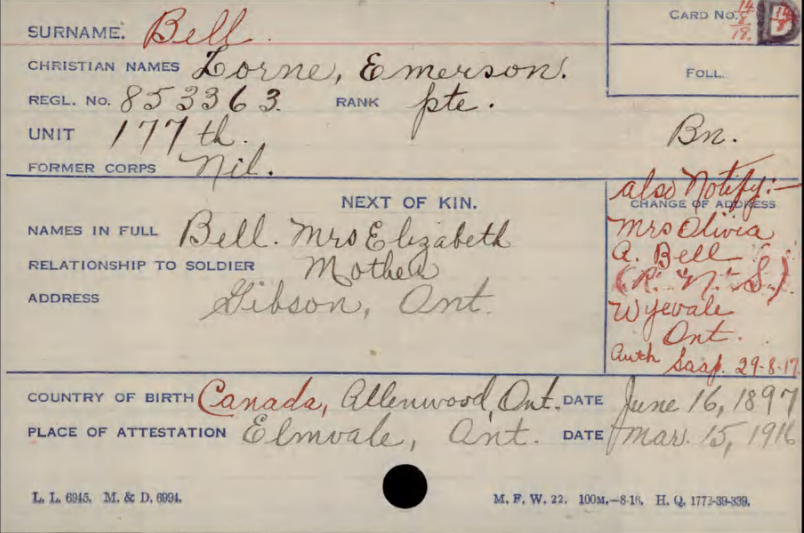 SURNAME. Bell.
CARD NO. 14
8
18.
D
CHRISTIAN NAMES Lorne, Emerson.
FOLL.
REGL. NO. 853363. RANK pte.
UNIT 177th. Bn.
FORMER CORPS Nil.
also Notify:-
NEXT OF KIN.
CHANGE OF ADDRESS
NAMES IN FULL Bell. Mrs Elizabeth
RELATIONSHIP TO SOLDIER Mother
ADDRESS Gibson, Ont.
Mrs Olivia
A. Bell
(R. "N." S.)
Wyevale
Ont.
Auth 29-8-17
COUNTRY OF BIRTH Canada, Allenwood, Ont. DATE June 16, 1897
PLACE OF ATTESTATION Elmvale, Ont. DATE Mar. 15, 1916
L. L. 6945. M. & D. 6994.
M. F. W. 22. 100M.-8-18. H. Q. 1772-39-339.